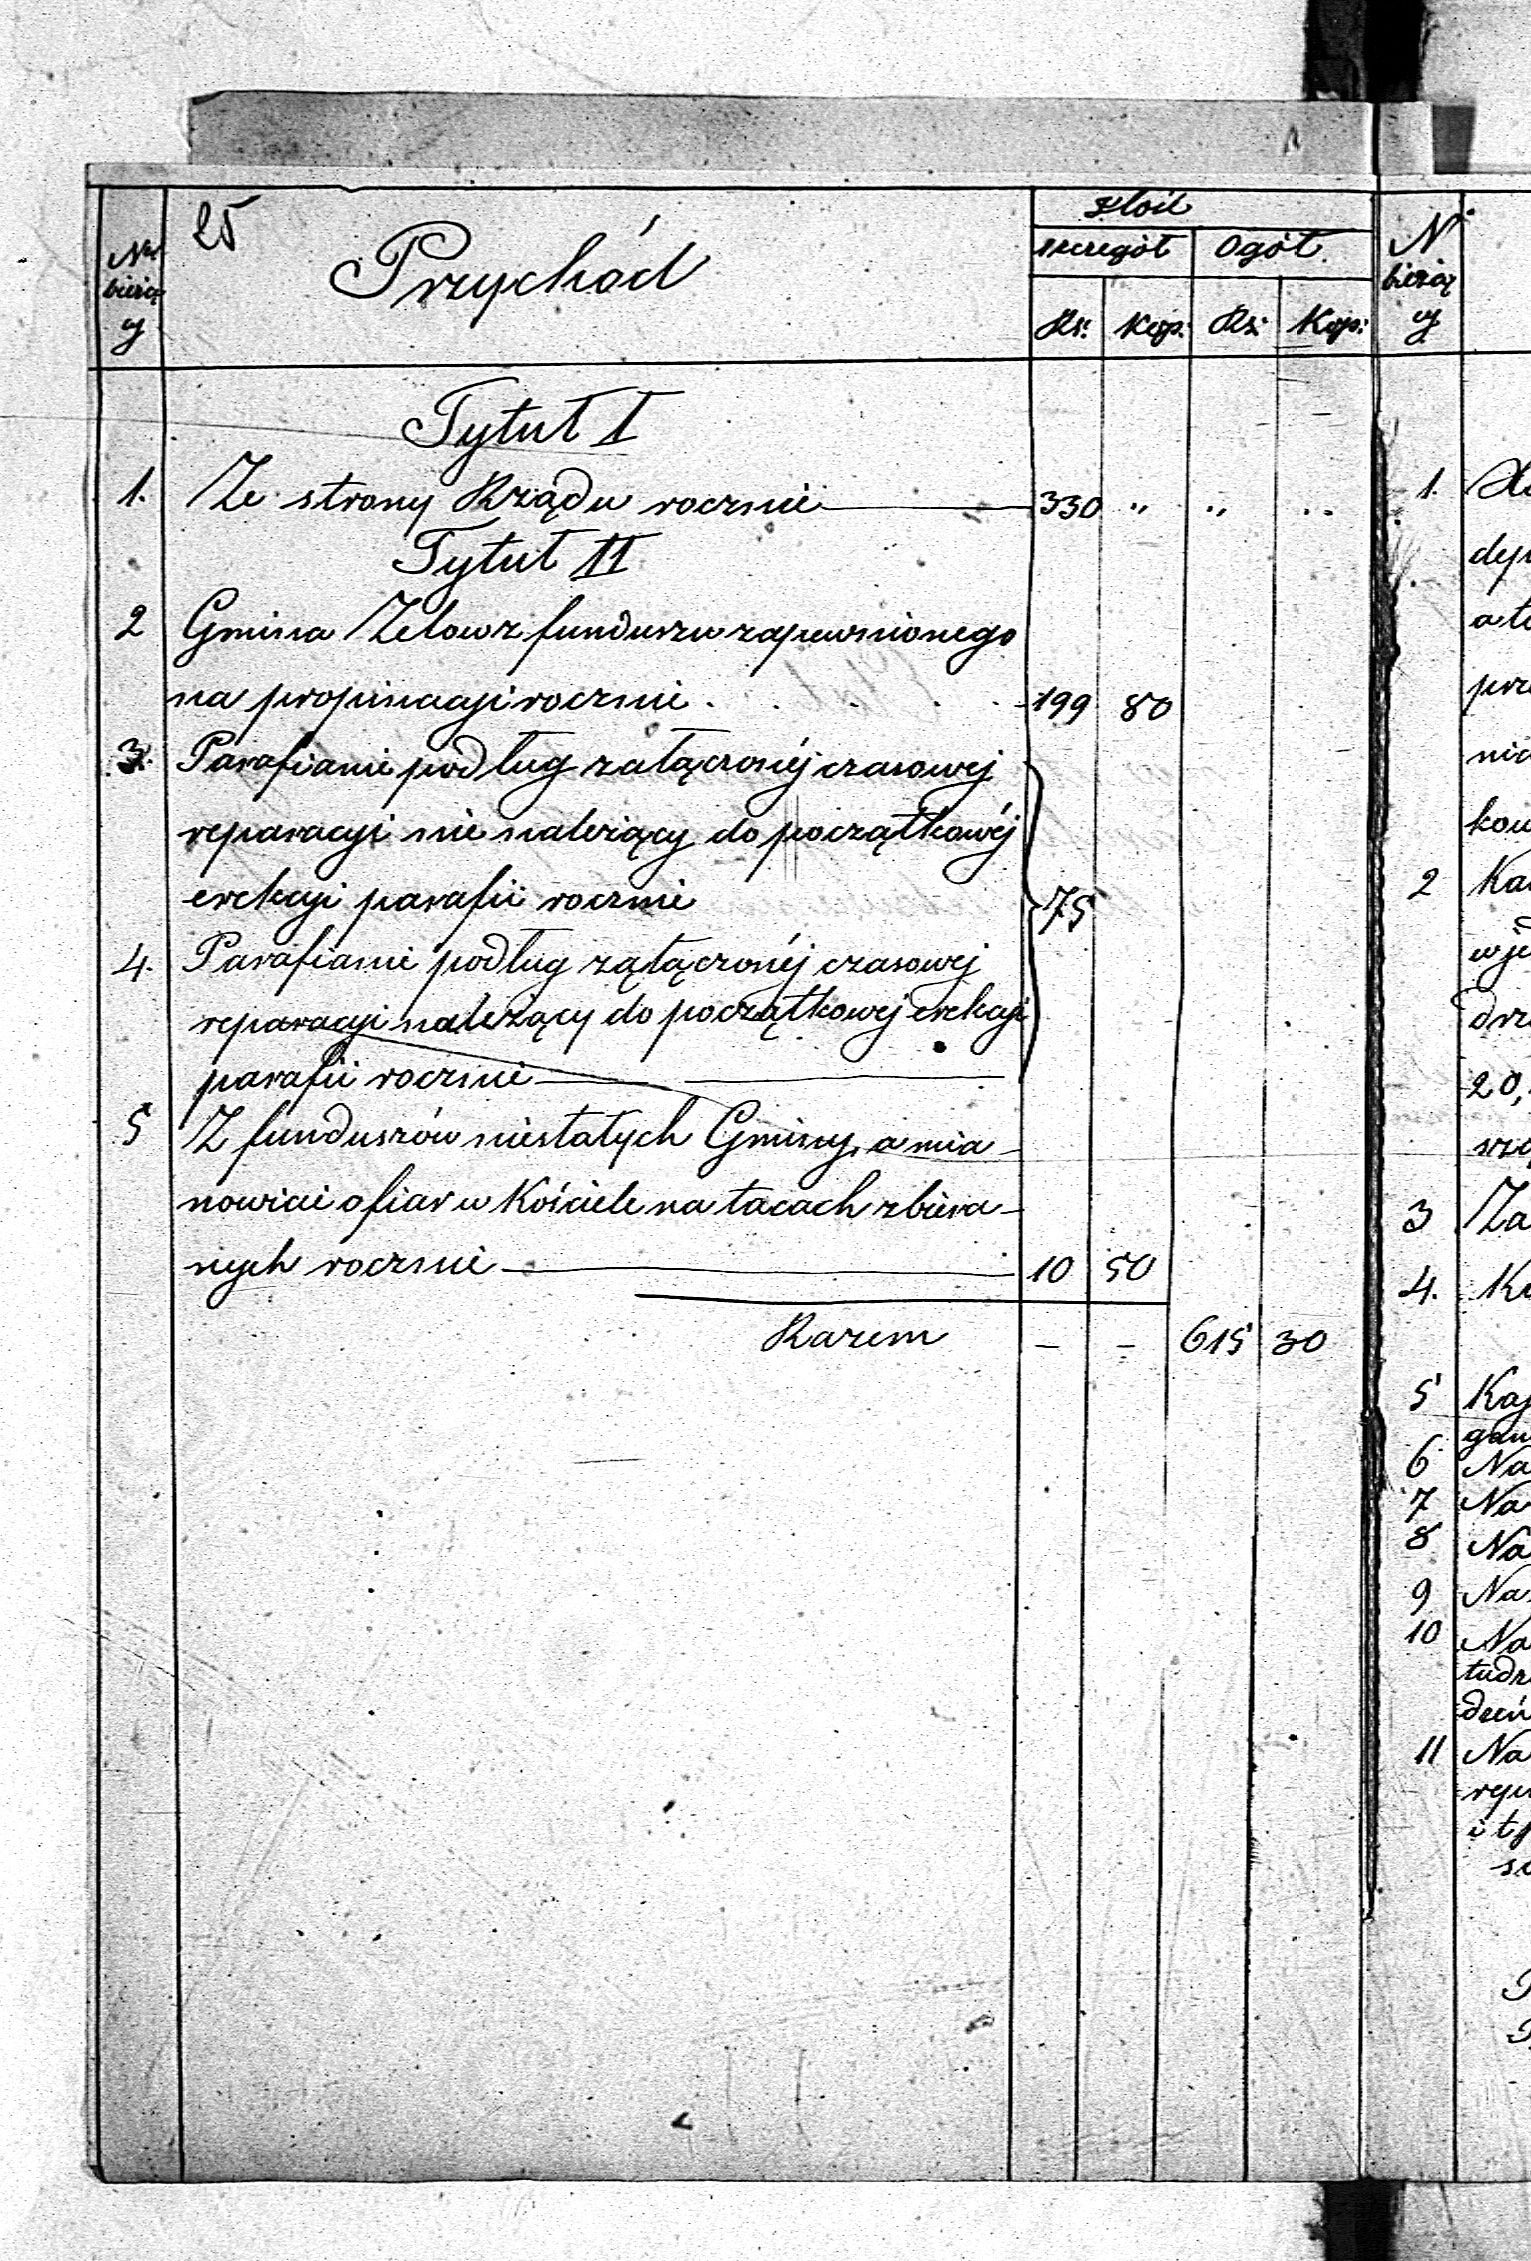 25
Nr bieżą cy
Przychód
Ilość
szczegół Ogół.
Rs. Kop. Rs. Kop.
Tytuł I
1. Ze strony Rządu rocznie 330 " " "
Tytuł II
2 Gmina Zelow z funduszu zapewnionego
na propinacyi rocznie . . . . 199 80
3. Parafianie podług załączonéj czasowej
reparacyi nie należący do początkowéj
erekcyi parafii rocznie 75
4. Parafianie podług załączonéj czasowej
reparacyi należący do początkowej erekcyi
parafii rocznie
5 Z funduszów niestałych Gminy, a mia-
nowicie ofiar w Kościele na tacach zbiera-
nych rocznie 10 50
Razem - - 615 30
N bieżą cy
1.
2
3 Za
4.
5
6 Na
7 Na
8 Na
9 Na
10 Na
11 Na